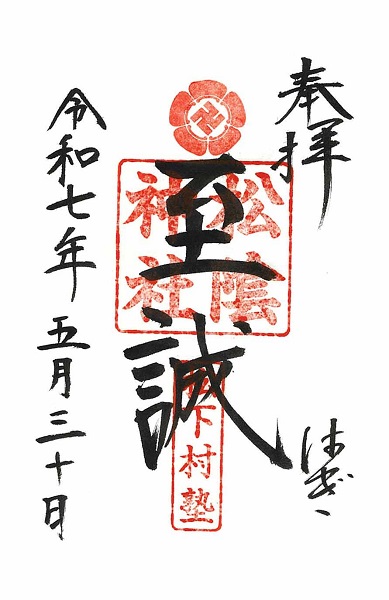 奉拝
はぎ
至誠
松陰神社
松下村塾
令和七年五月三十日